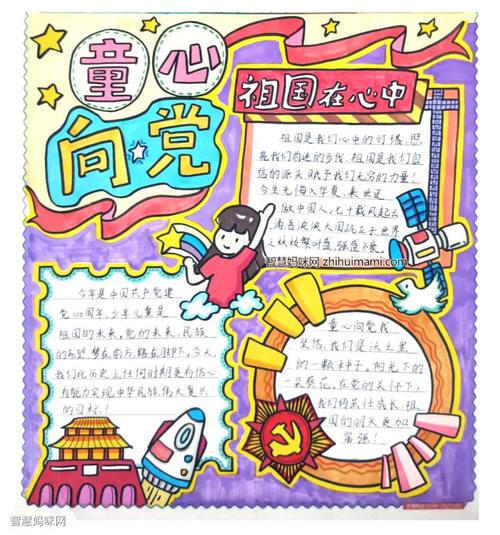 童心
向党
祖国在心中
祖国是我们心中的灯塔,照
亮我们前进的步伐,祖国是我们自
信的源头,赋予我们无穷的力量!
今生无悔入华夏,来世还
做中国人,七十载风起云
涌,吾泱泱大国屹立于世界
之林枝繁叶盛,强盛不衰。
智慧妈咪网 zhihuimami.com
今年是中国共产党建
党100周年,少年儿童是
祖国的未来,党的未来,民族
的希望,梦在前方,路在脚下,今天,
我们比历史上任何时期更有信心
有能力实现中华民族伟大复兴
的目标!
童心向党我
坚信,我们是沃土里
的一颗种子,阳光下的
一朵葵花,在党的关怀下,
我们将茁壮成长,祖
国的明天更加
富强!
智慧妈咪网